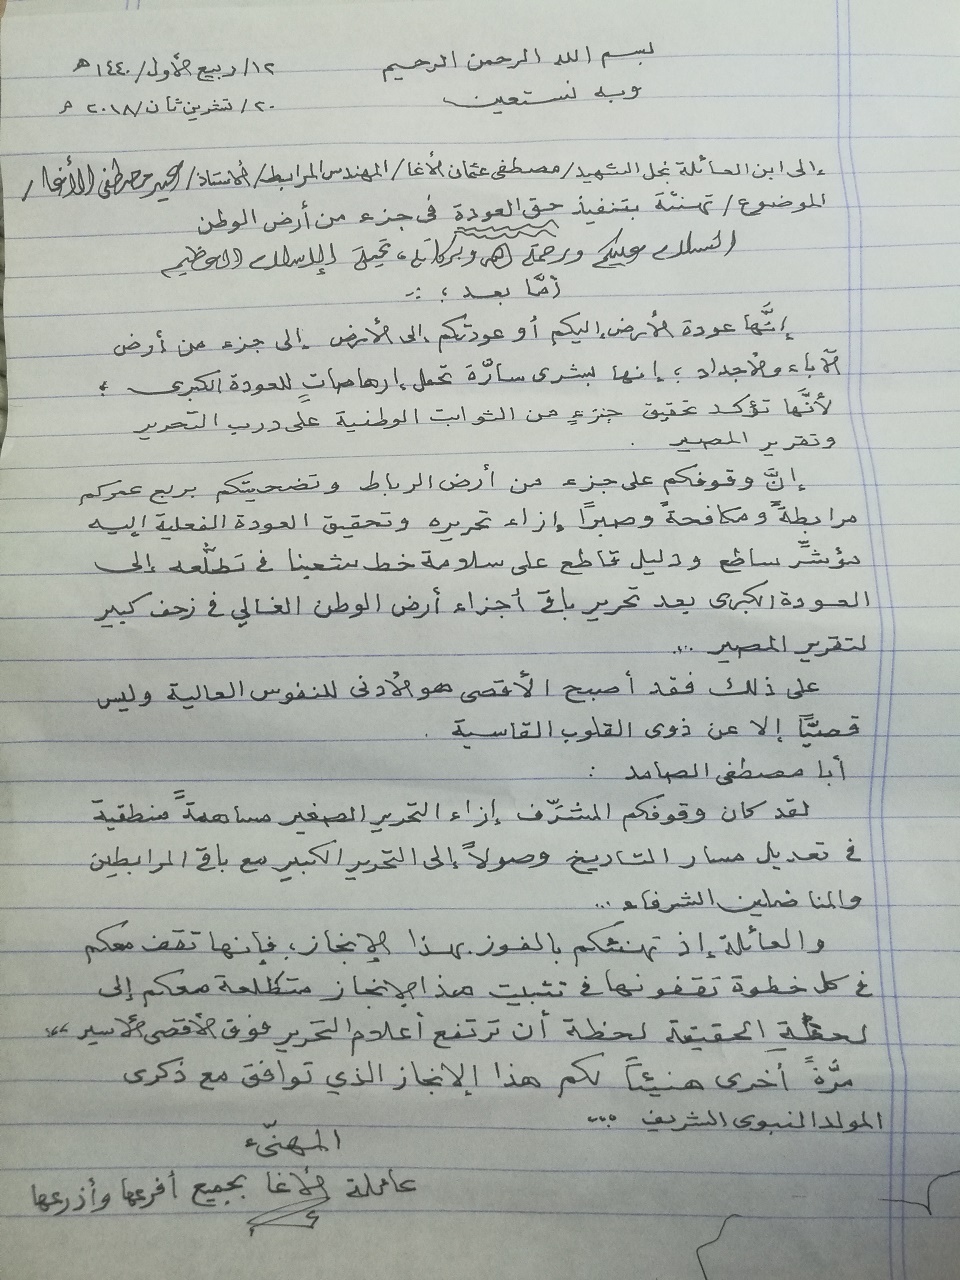 بسم الله الرحمن الرحيم
١٢/ ربيع الأول/ ١٤٤٠ هـ
وبه نستعين
٢٠/ تشرين ثان/ ٢٠١٨ م
إلى ابن العائلة نجل الشهيد/ مصطفى عثمان الأغا/ المهندس المرابط/ الأستاذ/ مصطفى الأغا/
الموضوع/ تهنئة بتنفيذ حق العودة في جزء من أرض الوطن
السلام عليكم ورحمة الله وبركاته، تحية الإسلام العظيم
أمَّا بعد ؛ :-
إنَّها عودة الأرض إليكم أو عودتكم إلى الأرض إلى جزء من أرض
الآباء والأجداد ؛ إنها بشرى سارَّة تحمل إرهاصاتٍ للعودة الكبرى ؛
لأنَّها تؤكد تحقيق جزءٍ من الثوابت الوطنية على درب التحرير
وتقرير المصير .
إنَّ وقوفكم على جزء من أرض الرباط وتضحيتكم بربع عمركم
مرابطةً ومكافحةً وصبراً إزاء تحريره وتحقيق العودة الفعلية إليه
مؤشِّر ساطع ودليل قاطع على سلامة خط شعبنا في تطلُّعه إلى
العودة الكبرى بعد تحرير باقي أجزاء أرض الوطن الغالي في زحف كبير
لتقرير المصير ...
على ذلك فقد أصبح الأقصى هو الأدنى للنفوس العالية وليس
قصيًّا إلا عن ذوى القلوب القاسية .
أبا مصطفى الصامد :
لقد كان وقوفكم المشرِّف إزاء التحرير الصغير مساهمةً منطقية
في تعديل مسار التاريخ وصولاً إلى التحرير الكبير مع باقي المرابطين
والمناضلين الشرفاء ...
والعائلة إذ تهنئكم بالفوز بهذا الإنجاز ؛ فإنها تقف معكم
في كل خطوة تقفونها في تثبيت هذا الإنجاز متطلعة معكم إلى
لحظة الحقيقة لحظة أن ترتفع أعلام التحرير فوق الأقصى الأسير ،،
مرَّةً أخرى هنيئاً لكم هذا الإنجاز الذي توافق مع ذكرى
المولد النبوى الشريف ...
المهنّىء
عائلة الأغا بجميع أفرعها وأذرعها